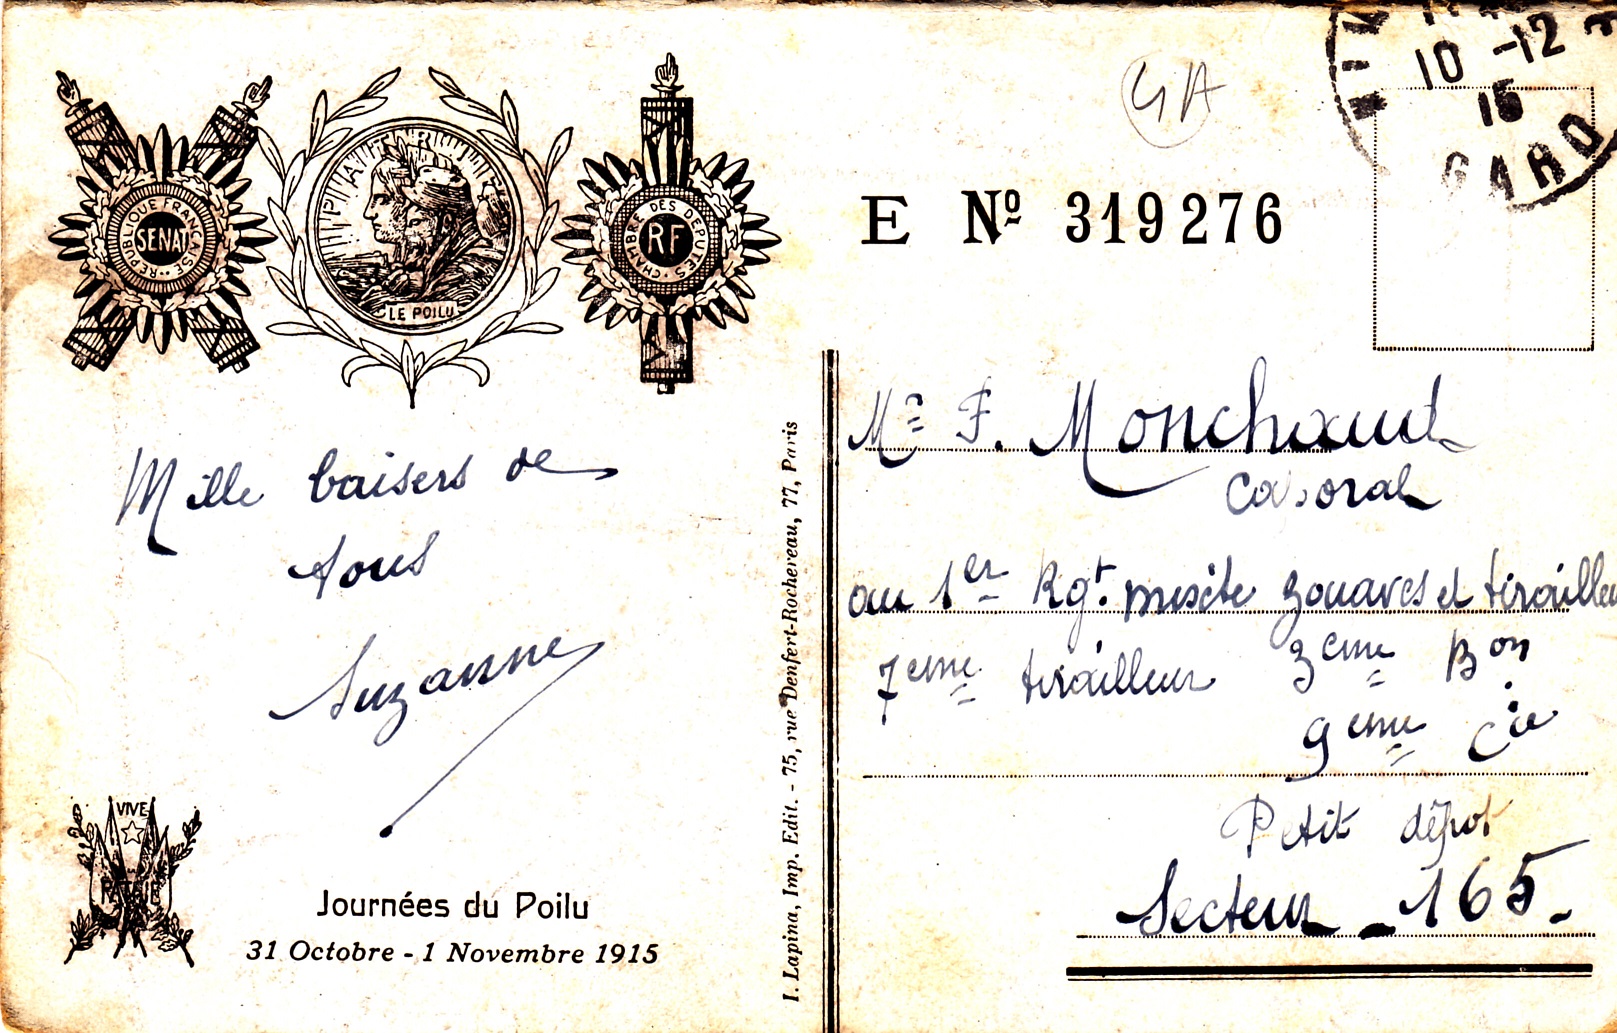 RÉPUBLIQUE FRANÇAISE
SÉNAT
LE POILU
CHAMBRE DES DÉPUTÉS
RF
GA
10 -12
15
GARD
E Nº 319276
Mille baisers de
tous
Suzanne
VIVE
PATRIE
Journées du Poilu
31 Octobre - 1 Novembre 1915
I. Lapina, Imp. Edit. - 75, rue Denfert-Rochereau, 77, Paris
Mr F. Monchaud
Caporal
au 1er Rgt. mixte zouaves et tirailleu
7eme tirailleur 3eme Bon
9eme Cie
Petit dépot
Secteur - 165 -